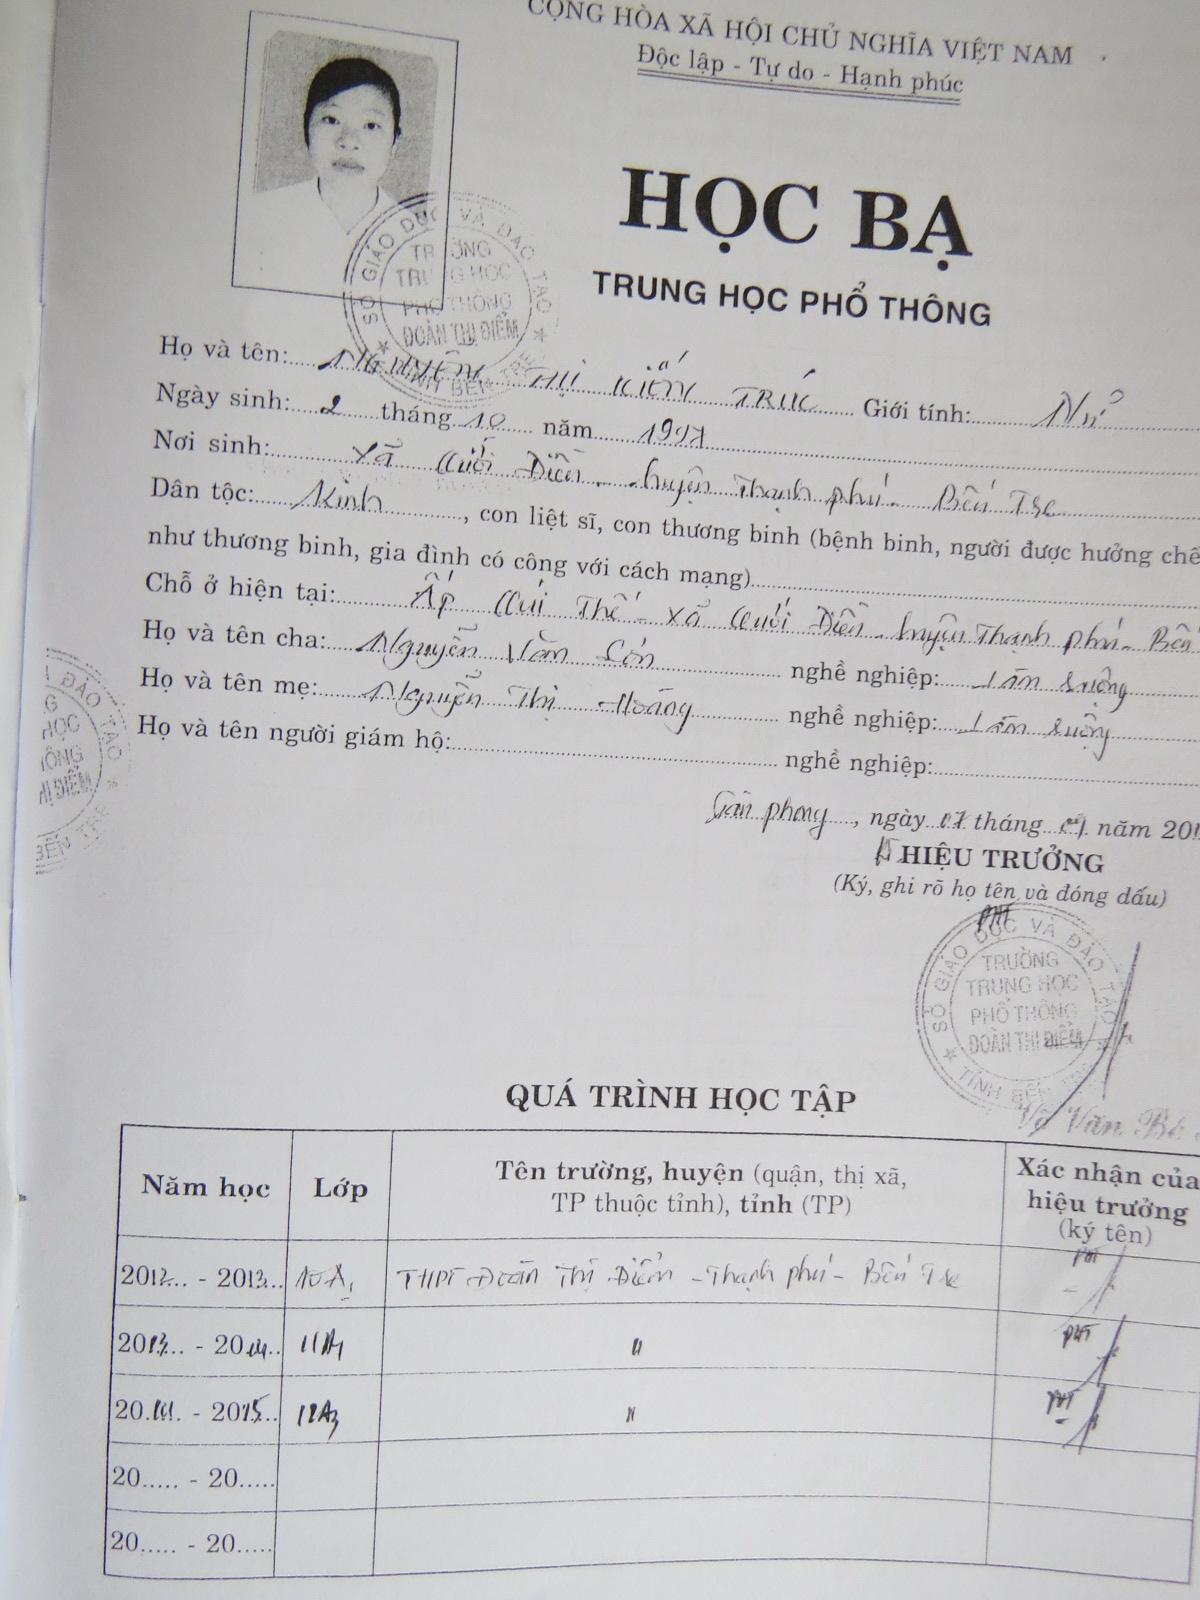 CỘNG HÒA XÃ HỘI CHỦ NGHĨA VIỆT NAM
Độc lập - Tự do - Hạnh phúc
HỌC BẠ
TRUNG HỌC PHỔ THÔNG
SỞ GIÁO DỤC VÀ ĐÀO TẠO
TRƯỜNG
TRUNG HỌC
PHỔ THÔNG
ĐOÀN THỊ ĐIỂM
TỈNH BẾN TRE
Họ và tên: NGUYỄN THỊ KIẾM TRÚC Giới tính: Nữ
Ngày sinh: 2 tháng 10 năm 1997
Nơi sinh: Xã Quới Điền - huyện Thạnh phú - Bến Tre
Dân tộc: Kinh, con liệt sĩ, con thương binh (bệnh binh, người được hưởng chế
như thương binh, gia đình có công với cách mạng)
Chỗ ở hiện tại: Ấp Quí Thế - xã Quới Điền - huyện Thạnh phú - Bến
Họ và tên cha: Nguyễn Văn nghề nghiệp: Làm ruộng
Họ và tên mẹ: Nguyễn Thị Hoàng nghề nghiệp: Làm ruộng
Họ và tên người giám hộ: nghề nghiệp:
ĐÀO TẠO
HỌC
HÔNG
THỊ ĐIỂM
BẾN TRE
Tân phong, ngày 07 tháng 01 năm 20
HIỆU TRƯỞNG
(Ký, ghi rõ họ tên và đóng dấu)
PHT
SỞ GIÁO DỤC VÀ ĐÀO TẠO
TRƯỜNG
TRUNG HỌC
PHỔ THÔNG
ĐOÀN THỊ ĐIỂM
TỈNH BẾN TRE
Võ Văn Bé
QUÁ TRÌNH HỌC TẬP
Năm học Lớp Tên trường, huyện (quận, thị xã, TP thuộc tỉnh), tỉnh (TP) Xác nhận của hiệu trưởng (ký tên)
2012... - 2013.. 10A1 THPT Đoàn Thị Điểm - Thạnh phú - Bến Tre PHT
2013... - 2014... 11A1 " PHT
20.14. - 2015... 12A3 " PHT
20..... - 20.....
20..... - 20.....